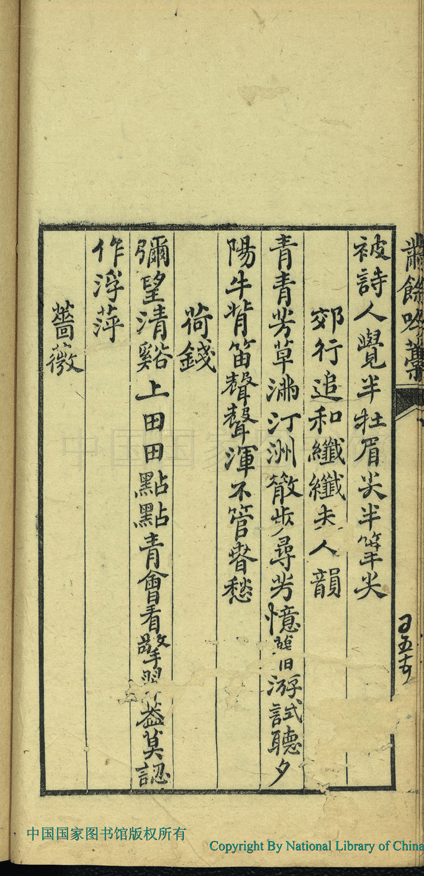 餘吟藁
被詩人覺半在眉尖半筆尖
郊行追和纖纖夫人韻
青青芳草滿汀洲散步尋芳憶舊游試聽夕
陽牛背笛聲聲渾不管春愁
荷錢
彌望清谿上田田點點青會看擎翠蓋莫認
作浮萍
薔薇
中国国家图书馆版权所有
Copyright By National Library of China